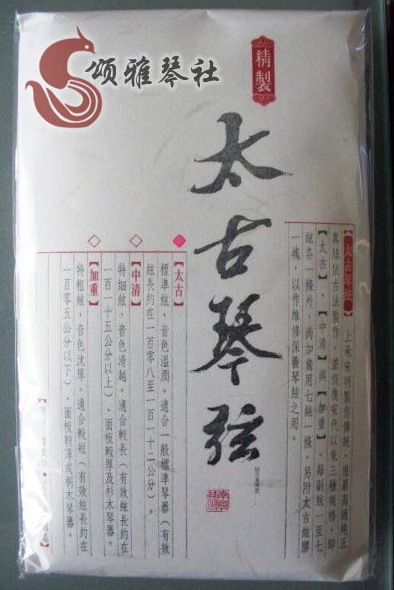 頌雅琴社
精製
太古琴弦
上承宋明製作傳統，用最高級純正
真絲依古法製作
【太古】【中清】與【加重】。每副絃一至七
絃各一條外，尚加備用七絃一條。另附太古絃膠
一塊，以作維修保養琴絃之用。
【太古】
標準絃，音色溫潤。適合一般標準琴器（有效
絃長約在一百零八至一百一十二公分）。
【中清】
特細絃，音色清越。適合較長（有效絃長約在
一百一十五公分以上）、面板較厚及杉木琴器。
【加重】
特粗絃，音色沈厚。適合較短（有效絃長約在
一百零五公分以下）、面板較薄或桐木琴器。